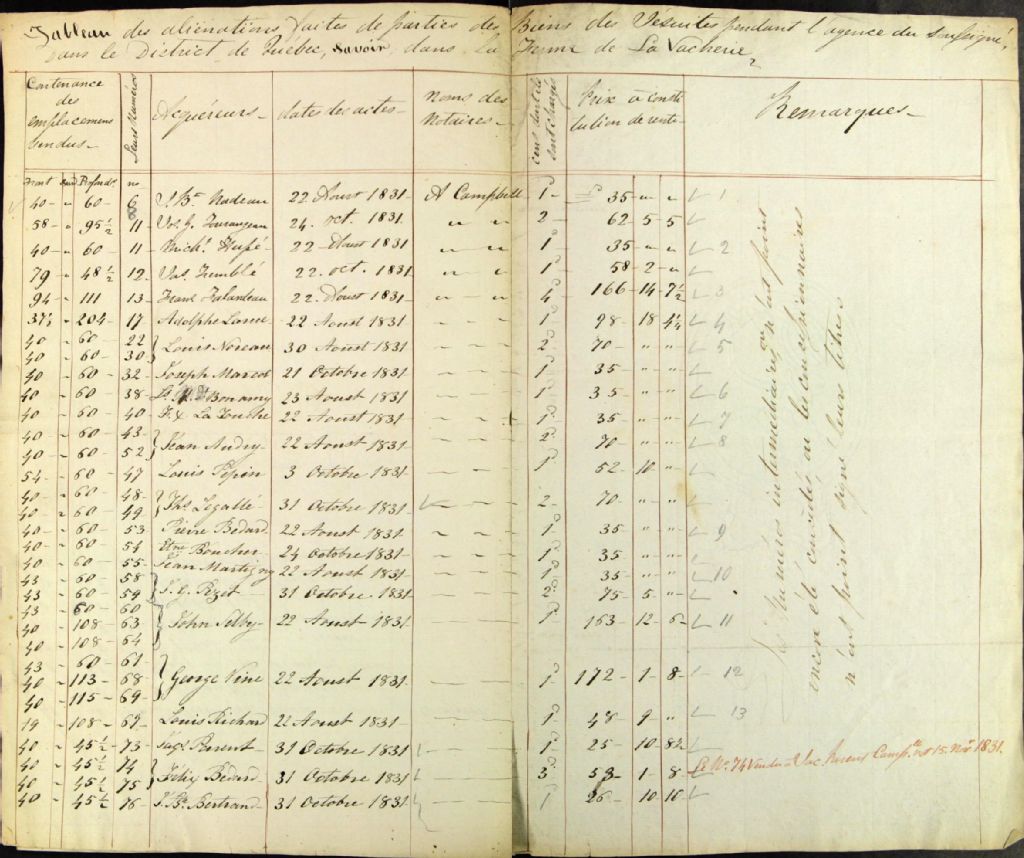 Tableau des aliénations faites de parties des Biens des Jésuites pendant l'agence du Soussigné,
dans le District de Quebec, Savoir, dans La Ferme de La Vacherie
Contenance des emplacemens vendus
Leurs Numéros
Acquéreurs
dates des actes
Noms des Notaires
cens dont ils sont chargés
Prix à constitution de rente
Remarques
front Profr. no
40 60 6 J. Bte. Nadeau 22 Aoust 1831 A Campbell 1 35 " " 1
58 95½ 11 24. oct. 1831 " " 2 62 5 5
40 60 11 22 Aoust 1831 " " 1 35 " " 2
79 48½ 12 Jas. Tremblé 22. oct. 1831 " " 1 58 2 "
94 111 13 22. Aoust 1831 " " 4 166 14 7½ 3
37½ 204 17 Adolphe Larue 22 Aoust 1831 1 98 18 4¼ 4
40 60 22
40 60 30 Louis Noreau 30 Aoust 1831 2 70 " " 5
40 60 32 Joseph Marcot 21 Octobre 1831 1 35 " "
40 60 38 Bonamy 23 Aoust 1831 1 35 " " 6
40 60 40 F. X. La Touche 22 Aoust 1831 1 35 " " 7
40 60 43
40 60 52 Jean Audry 22 Aoust 1831 2 70 " " 8
54 60 47 Louis Pepin 3 Octobre 1831 1 52 10 "
40 60 48
40 60 49 Ths. Legallé 31 Octobre 1831 2 70 " "
40 60 53 Pierre Bedard 22 Aoust 1831 1 35 " " 9
40 60 54 Etne. Boucher 24 Octobre 1831 1 35 " "
40 60 55 Jean Martigny 22 Aoust 1831 1 35 " " 10
43 60 58
43 60 59 Pezet 31 Octobre 1831 2 75 5 "
43 60 60
40 108 63 John Selby 22 Aoust 1831 1 163 12 6 11
40 108 64
43 60 61
40 113 68 George Vine 22 Aoust 1831 1 172 1 8 12
40 115 69
19 108 67 Louis Richard 22 Aoust 1831 1 48 9 " 13
40 45½ 73 Jacs. Parent 31 Octobre 1831 1 25 10 8½
40 45½ 74
40 45½ 75 Félix Bedard 31 Octobre 1831 3 53 1 8 Le No. 74 Vendu à Jac. Parent 15 Nov. 1831.
40 45½ 76 J. Bte. Bertrand 31 Octobre 1831 1 26 10 10
Les Numéros intermédiaires n'ont point
encore été concédés, ou les concessionnaires
n'ont point signé leurs titres